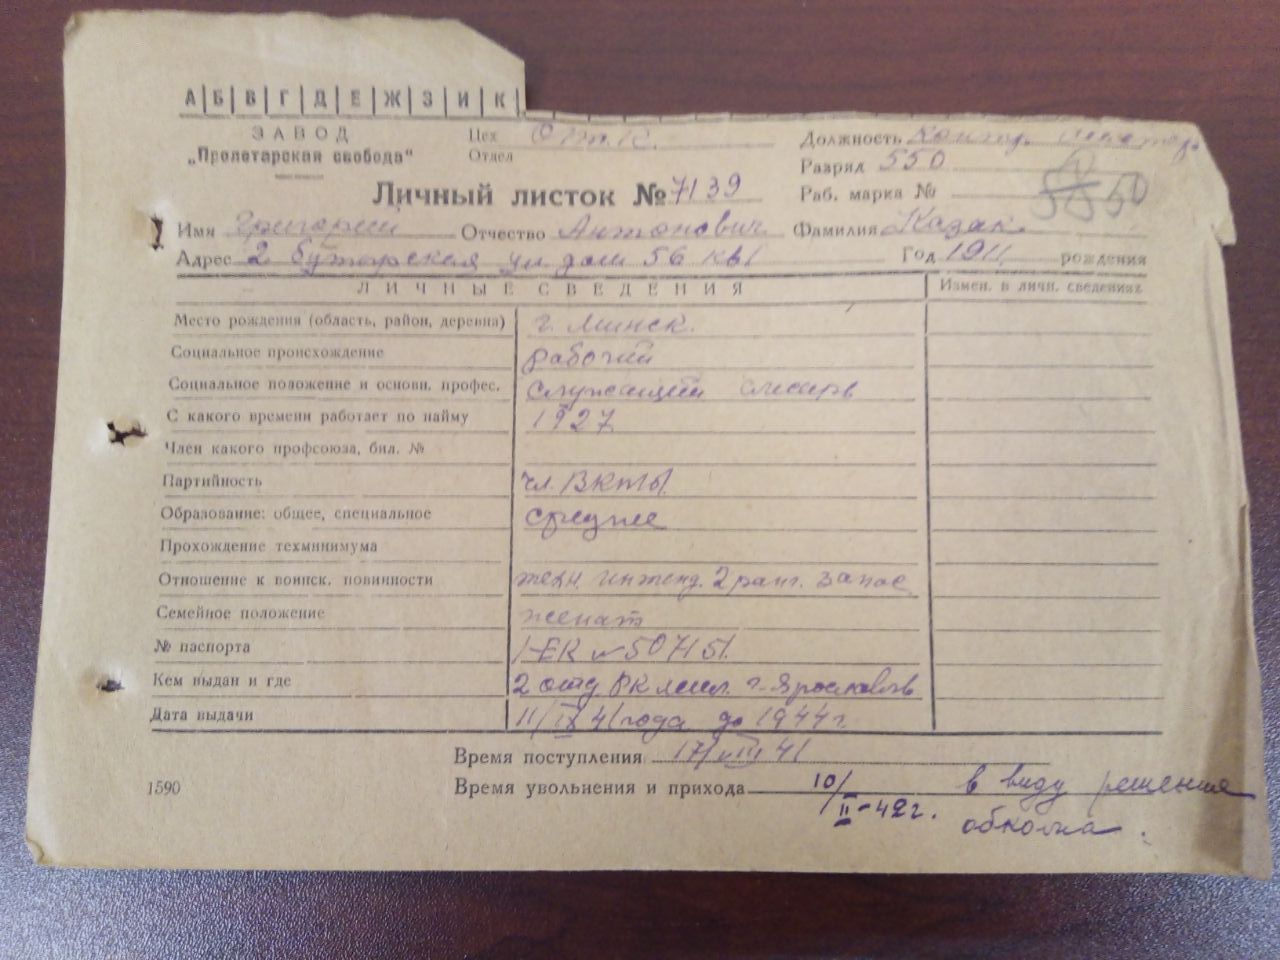 А Б В Г Д Е Ж З И К
ЗАВОД
„Пролетарская свобода"
Цех О.Т.К.
Отдел
Должность Контр.
Разряд 550
Раб. марка № 50
Личный листок № 7139
Имя Григорий Отчество Антонович Фамилия Казак.
Адрес 2 Бутырская ул дом 56 кв 1 Год 1911 рождения
ЛИЧНЫЕ СВЕДЕНИЯ Измен. в личн. сведениях
Место рождения (область, район, деревня) г. Минск.
Социальное происхождение рабочий
Социальное положение и основн. профес. служащий слесарь
С какого времени работает по найму 1927
Член какого профсоюза, бил. №
Партийность чл. ВКП(б).
Образование: общее, специальное среднее
Прохождение техминимума
Отношение к воинск. повинности техн. интенд. 2 ранг. запас
Семейное положение женат
№ паспорта I-ЕК № 507151.
Кем выдан и где 2 отд РК мил. г. Ярославль
Дата выдачи 11/IX 41 года до 1944 г.
Время поступления 17/VIII 41
1590 Время увольнения и прихода 10/II-42 г. в виду решения
обкома.